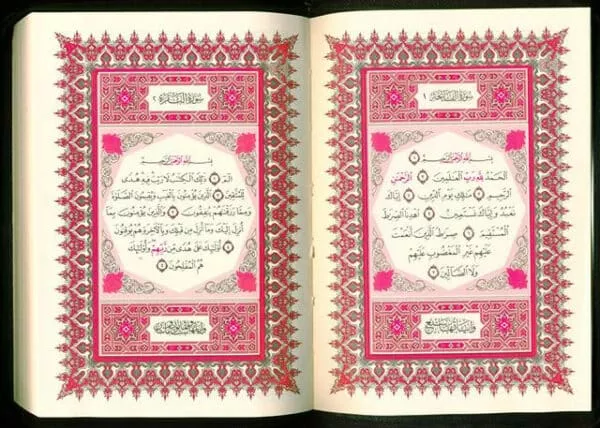 سُورَةُ الفَاتِحَةِ ١
بِسْمِ ٱللَّهِ ٱلرَّحْمَٰنِ ٱلرَّحِيمِ ١
ٱلْحَمْدُ لِلَّهِ رَبِّ ٱلْعَٰلَمِينَ ٢ ٱلرَّحْمَٰنِ
ٱلرَّحِيمِ ٣ مَٰلِكِ يَوْمِ ٱلدِّينِ ٤ إِيَّاكَ
نَعْبُدُ وَإِيَّاكَ نَسْتَعِينُ ٥ ٱهْدِنَا ٱلصِّرَٰطَ
ٱلْمُسْتَقِيمَ ٦ صِرَٰطَ ٱلَّذِينَ أَنْعَمْتَ
عَلَيْهِمْ غَيْرِ ٱلْمَغْضُوبِ عَلَيْهِمْ
وَلَا ٱلضَّآلِّينَ ٧
سُورَةُ البَقَرَةِ ٢
بِسْمِ ٱللَّهِ ٱلرَّحْمَٰنِ ٱلرَّحِيمِ
الٓمٓ ١ ذَٰلِكَ ٱلْكِتَٰبُ لَا رَيْبَ فِيهِ هُدًى
لِّلْمُتَّقِينَ ٢ ٱلَّذِينَ يُؤْمِنُونَ بِٱلْغَيْبِ وَيُقِيمُونَ ٱلصَّلَوٰةَ
وَمِمَّا رَزَقْنَٰهُمْ يُنفِقُونَ ٣ وَٱلَّذِينَ يُؤْمِنُونَ بِمَآ
أُنزِلَ إِلَيْكَ وَمَآ أُنزِلَ مِن قَبْلِكَ وَبِٱلْءَاخِرَةِ هُمْ يُوقِنُونَ
٤ أُو۟لَٰٓئِكَ عَلَىٰ هُدًى مِّن رَّبِّهِمْ وَأُو۟لَٰٓئِكَ
هُمُ ٱلْمُفْلِحُونَ ٥